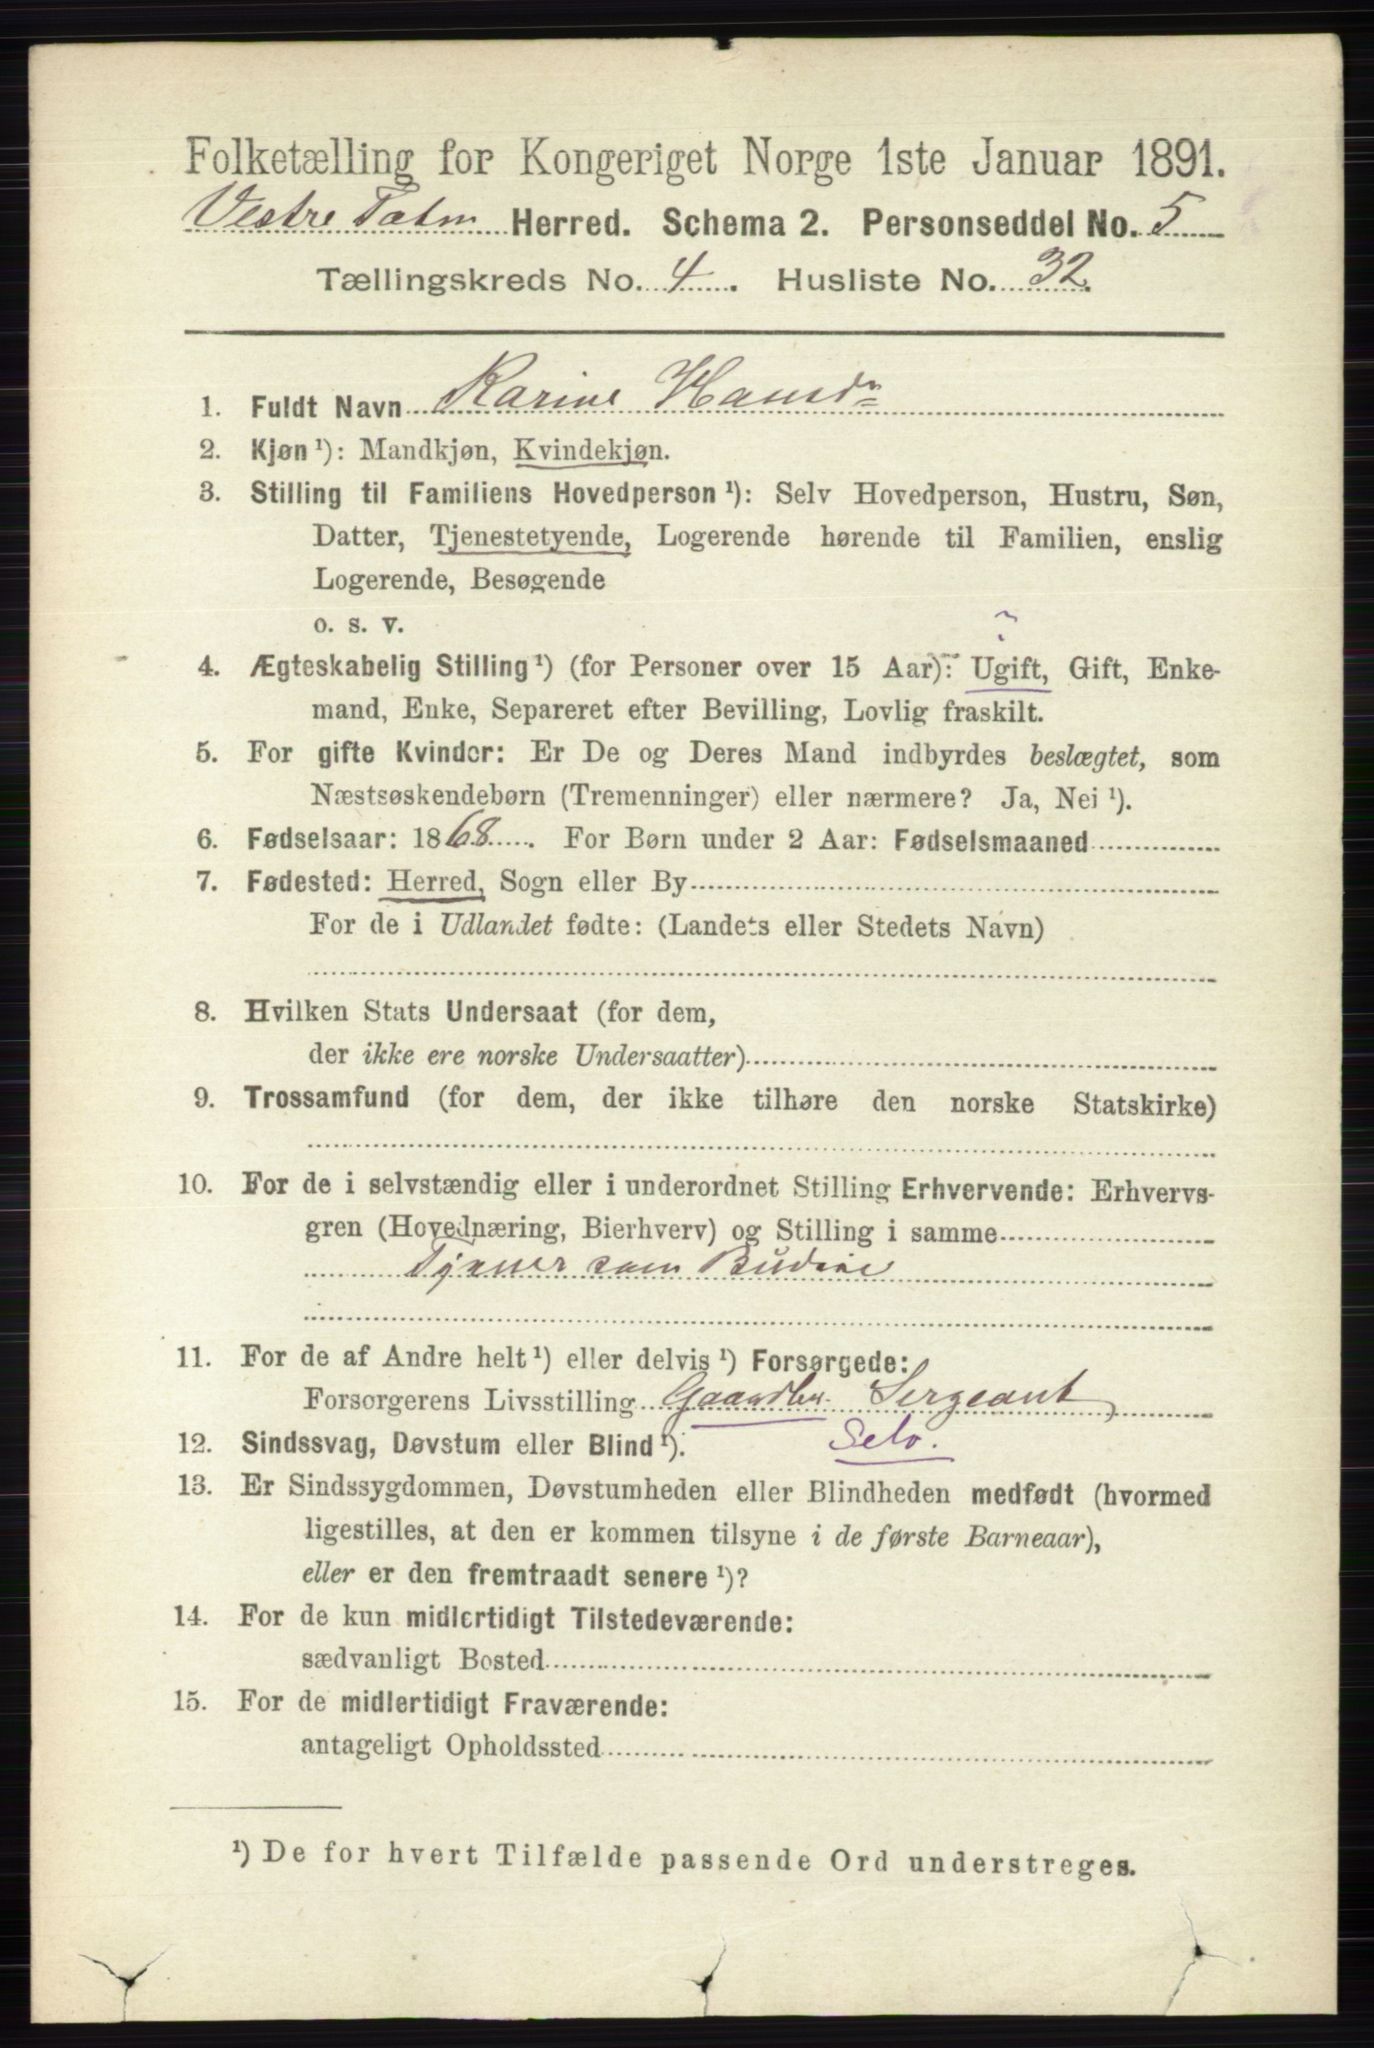 Folketælling for Kongeriget Norge 1ste Januar 1891.
Vestre Totn Herred. Schema 2. Personseddel No. 5
Tællingskreds No. 4. Husliste No. 32.
1. Fuldt Navn Karine Hansdn
2. Kjøn ¹): Mandkjøn, Kvindekjøn.
3. Stilling til Familiens Hovedperson ¹): Selv Hovedperson, Hustru, Søn,
Datter, Tjenestetyende, Logerende hørende til Familien, enslig
Logerende, Besøgende
o. s. v.
4. Ægteskabelig Stilling ¹) (for Personer over 15 Aar): Ugift, Gift, Enke-
mand, Enke, Separeret efter Bevilling, Lovlig fraskilt.
5. For gifte Kvinder: Er De og Deres Mand indbyrdes beslægtet, som
Næstsøskendebørn (Tremenninger) eller nærmere? Ja, Nei ¹).
6. Fødselsaar: 1868. For Børn under 2 Aar: Fødselsmaaned
7. Fødested: Herred, Sogn eller By
For de i Udlandet fødte: (Landets eller Stedets Navn)
8. Hvilken Stats Undersaat (for dem,
der ikke ere norske Undersaatter)
9. Trossamfund (for dem, der ikke tilhøre den norske Statskirke)
10. For de i selvstændig eller i underordnet Stilling Erhvervende: Erhvervs-
gren (Hovednæring, Bierhverv) og Stilling i samme
Tjener som Budeie
11. For de af Andre helt ¹) eller delvis ¹) Forsørgede:
Forsørgerens Livsstilling Gaardbr. Sergeant
12. Sindssvag, Døvstum eller Blind ¹). Selv.
13. Er Sindssygdommen, Døvstumheden eller Blindheden medfødt (hvormed
ligestilles, at den er kommen tilsyne i de første Barneaar),
eller er den fremtraadt senere ¹)?
14. For de kun midlertidigt Tilstedeværende:
sædvanligt Bosted
15. For de midlertidigt Fraværende:
antageligt Opholdssted
¹) De for hvert Tilfælde passende Ord understreges.